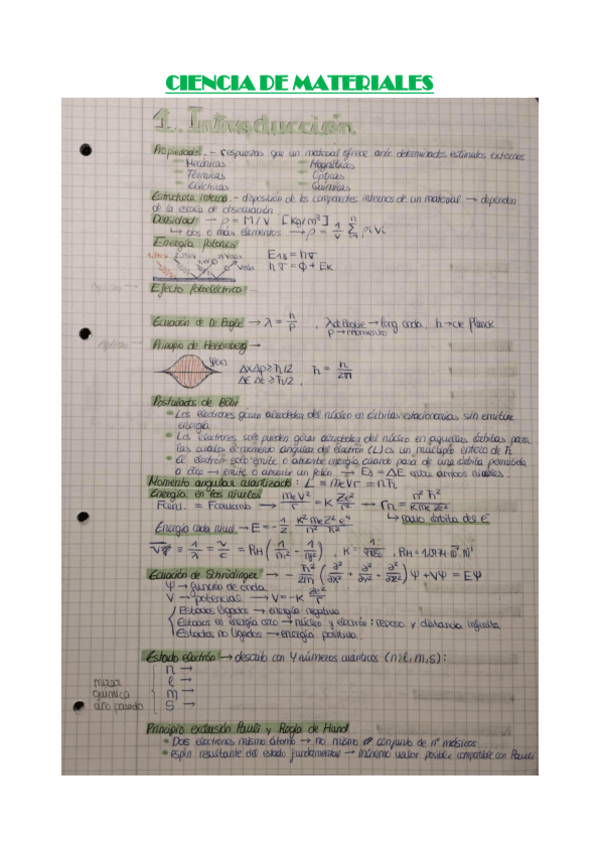 CIENCIA DE MATERIALES
1. Introducción
Propiedades.- respuestas que un material ofrece ante determinados estímulos externos
Mecánicas Magnéticas
Térmicas Ópticas
Eléctricas Químicas
Estructura interna.- disposición de los componentes internos de un material → dependen
de la escala de observación
Densidad → ρ = M/V [Kg/m³]
↳ dos o más elementos → ρ = 1/V Σ ρi Vi
Energía fotones
hν = Φ + Ek
Efecto fotoeléctrico
Ecuación de De Broglie → λ = h/p , → long onda, h → cte Planck
p → momento
Principio de Heisenberg →
Δx Δp ≥ ħ/2 ħ = h/2π
ΔE Δt ≥ ħ/2 ,
Postulados de Bohr
Los electrones giran alrededor del núcleo en órbitas estacionarias sin emitir
energía
Los electrones solo pueden girar alrededor del núcleo en aquellas órbitas para
las cuales el momento angular del electrón (L) es un múltiplo entero de ħ
El electrón solo emite o absorbe energía cuando pasa de una órbita permitida
a otra → emite o absorbe un fotón → = ΔE entre ambos niveles
Momento angular cuantizado: L = me v r = nħ
Energía en los niveles
= Fcoulomb → me v²/r = K Ze²/r² → rn = n² ħ²/K me Z e²
↳ radio órbita del e⁻
Energía cada nivel → E = - 1/2 K² me Z² e⁴/n² ħ²
= 1/λ = ν/c = RH (1/n1² - 1/n2²) , K = , RH = 1,0974·10⁷ m⁻¹
Ecuación de Schrödinger → - ħ²/2m (∂²/∂x² + ∂²/∂y² + ∂²/∂z²) Ψ + VΨ = EΨ
Ψ → función de onda
V → potencial → V = -K Ze²/r
Estados ligados → energía negativa
Estados en energía cero → núcleo y electrón: reposo y distancia infinita
Estados no ligados → energía positiva
Estado electrón → descrito con 4 números cuánticos (n, l, m, s):
n →
mirar l →
química m →
año pasado s →
Principio exclusión Pauli y Regla de Hund
Dos electrones mismo átomo → no mismo conjunto de nº
Espín resultante del estado fundamental → máximo valor posible compatible con Pauli